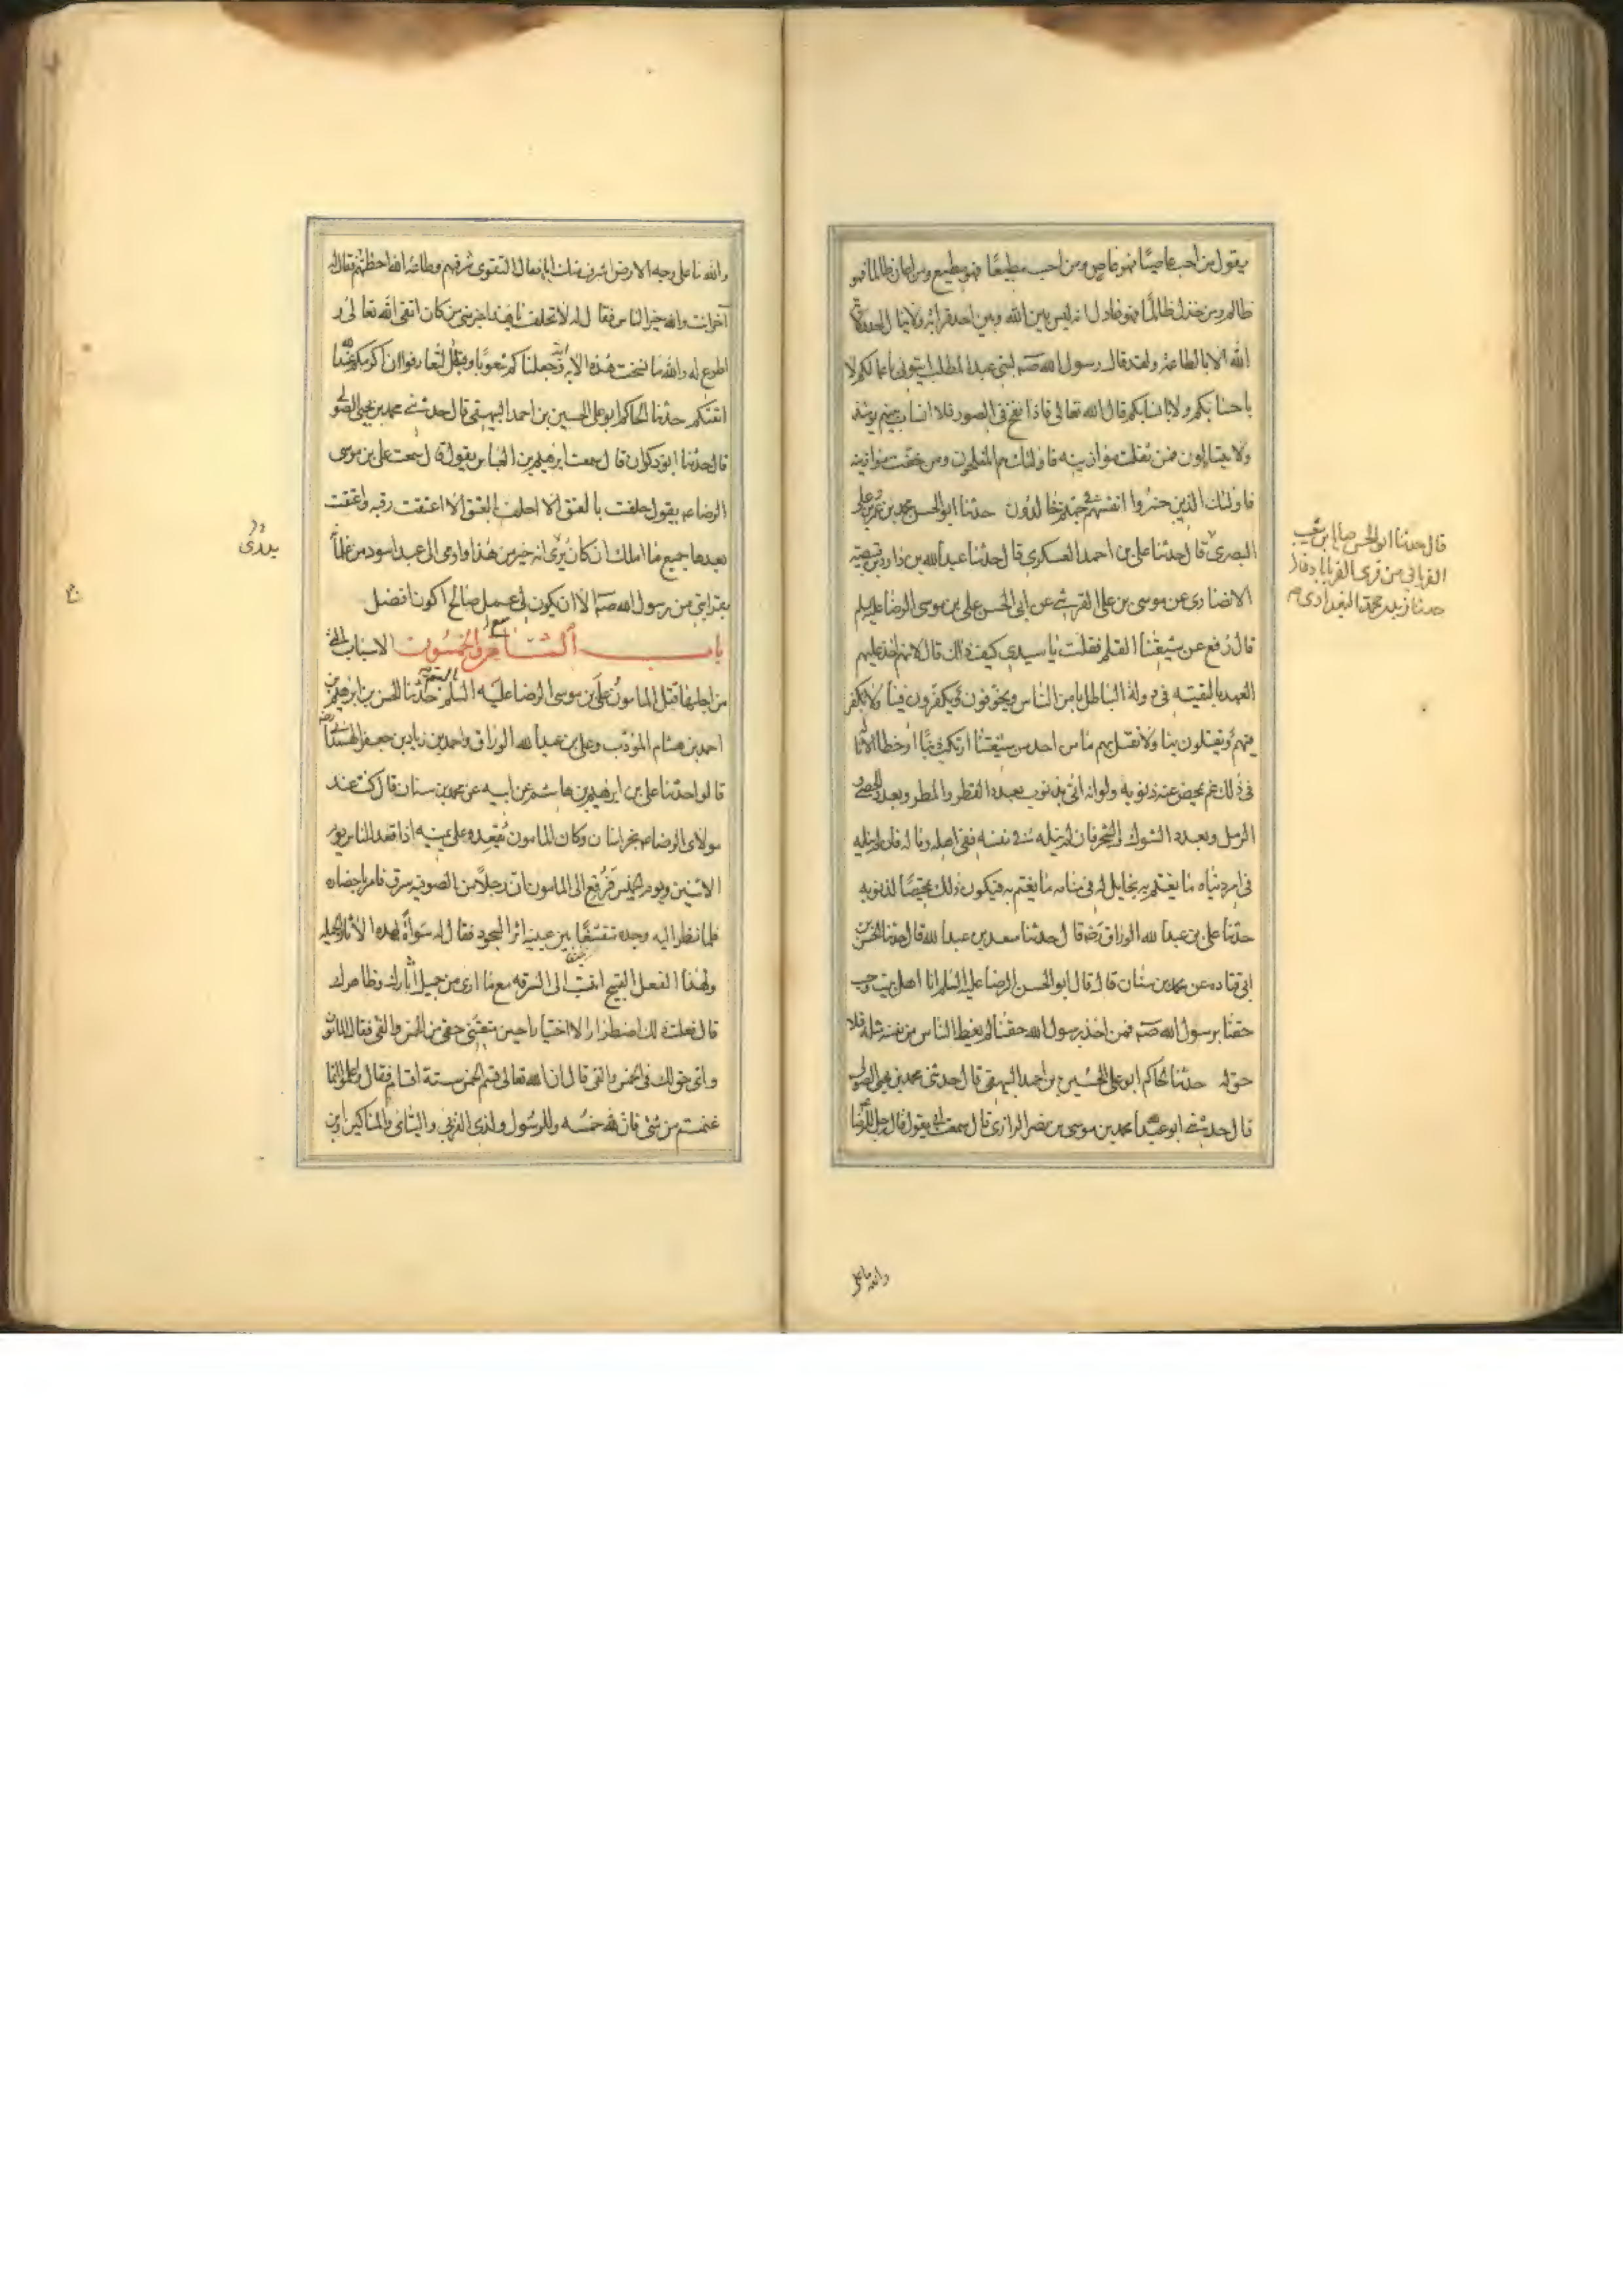 يقول من احب عاصيًا فهو عاص ومن احب مطيعًا فهو مطيع ومن اعان ظالما فهو
ظالم ومن خذل ظالمًا فهو عادل انه ليس بين الله وبين احد قرابة ولا ينال احد ولاية
الله الا بالطاعة ولقد قال رسول الله صم لبنى عبد المطلب ايتونى باعمالكم لا
باحسابكم ولا انسابكم قال الله تعالى فاذا نفخ فى الصور فلا انساب بينهم يومئذ
ولا يتسائلون فمن ثقلت موازينه فاولئك هم المفلحون ومن خفت موازينه
فاولئك الذين خسروا انفسهم فى جهنم خالدون حدثنا ابو الحسن محمد بن عمرو بن على
البصرى قال حدثنا على بن احمد العسكرى قال حدثنا عبد الله بن داود بن قبيصة
الانصارى عن موسى بن على القرشى عن ابى الحسن على بن موسى الرضا عليه السلم
قال رفع عن شيعتنا القلم فقلت يا سيدى كيف ذاك قال لانهم اخذ عليهم
العهد بالتقية فى دولة الباطل يامن الناس ويخوفون ويكفرون فينا ولا نكفر
فيهم ويقتلون بنا ولا نقتل بهم ما من احد من شيعتنا ارتكب ذنبًا او خطا الا ناله
فى ذلك غم يمحص عنه ذنوبه ولو انه اتى بذنوب بعدد القطر والمطر وبعدد الحصى و
الرمل وبعدد الشوك والشجر فان لم ينله فى نفسه ففى اهله وماله فان لم ينله
فى امر دنياه ما يغتم به تخايل له فى منامه ما يغتم به فيكون ذلك تمحيصًا لذنوبه
حدثنا على بن عبد الله الوراق رضه قال حدثنا سعد بن عبد الله قال حدثنا الحسن بن
ابى قتاده عن محمد بن سنان قال قال ابو الحسن الرضا عليه السلم انا اهل بيت وجب
حقنا برسول الله صم فمن اخذ برسول الله حقنا لم يعط الناس من نفسه مثله فلا
حق له حدثنا الحاكم ابو على الحسين بن احمد البيهقى قال حدثنى محمد بن يحيى الصولى
قال حدثنى ابو عبد الله محمد بن موسى بن نصر الرازى قال سمعت ابى يقول قال رجل للرضا
قال حدثنا ابو الحسن صالح بن شعيب
الغريانى من قرى الفرياب قال
حدثنا زيد بن محمد البغدادى
والله ما على
والله ما على وجه الارض اشرف منك ابا فقال التقوى شرفهم وطاعة الله احظتهم فقال له
آخر انت والله خير الناس فقال له لا تحلف يا هذا خير منى من كان اتقى الله تعالى و
اطوع له والله ما نسخت هذه الاية وجعلناكم شعوبًا وقبائل لتعارفوا ان اكرمكم عند الله
اتقيكم حدثنا الحاكم ابو على الحسين بن احمد البيهقى قال حدثنى محمد بن يحيى الصولى
قال حدثنا ابو ذكوان قال سمعت ابرهيم بن العباس يقول قال سمعت على بن موسى
الرضا عم يقول حلفت بالعتق الا احلف بالعتق الا اعتقت رقبه واعتقت
بعدها جميع ما املك ان كان يرى انه خير من هذا واومى الى عبد اسود من غلمانه
بقرابتى من رسول الله صم الا ان يكون لى عمل صالح اكون افضل
باب التاسع والخمسون الاسباب التى
من اجلها قتل المامون على بن موسى الرضا عليه السلم بالسم حدثنا الحسن بن ابرهيم بن
احمد بن هشام المؤدب وعلى بن عبد الله الوراق واحمد بن زياد بن جعفر الهمدانى رضه
قالوا حدثنا على بن ابرهيم بن هاشم عن ابيه عن محمد بن سنان قال كنت عند
مولاى الرضا عم بخراسان وكان المامون يقعده على يمينه اذا قعد للناس يوم
الاثنين ويوم الخميس فرفع الى المامون ان رجلاً من الصوفيه سرق فامر باحضاره
فلما نظر اليه وجده متقشفًا بين عينيه اثر السجود فقال له سواةً لهذه الاثار الجميله
ولهذا الفعل القبيح اتنسب الى السرقه مع ما ارى من جميل آثارك وظاهرك
قال فعلت ذلك اضطرارا لا اختيارا حين منعتنى حقى من الخمس والفى فقال المامون
واى حق لك فى الخمس والفى قال ان الله تعالى قسم الخمس ستة اقسام فقال واعلموا انما
غنمتم من شئ فان لله خمسه وللرسول ولذى القربى واليتامى والمساكين وابن